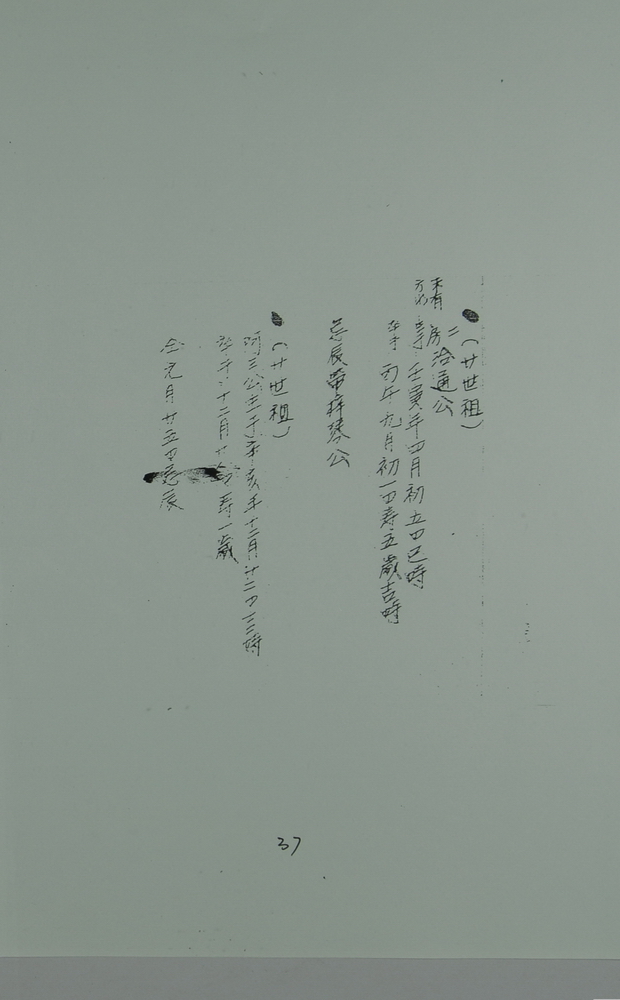 (廿世祖)
二房洽通公
未有
生于壬寅年四月初五日巳時
卒于丙午年九月初一日壽五歲吉時
忌辰帶梓琴公
(廿世祖)
阿三公生于辛亥年十二月廿二日
十二月廿 日壽一歲
元月廿五日忌辰
37